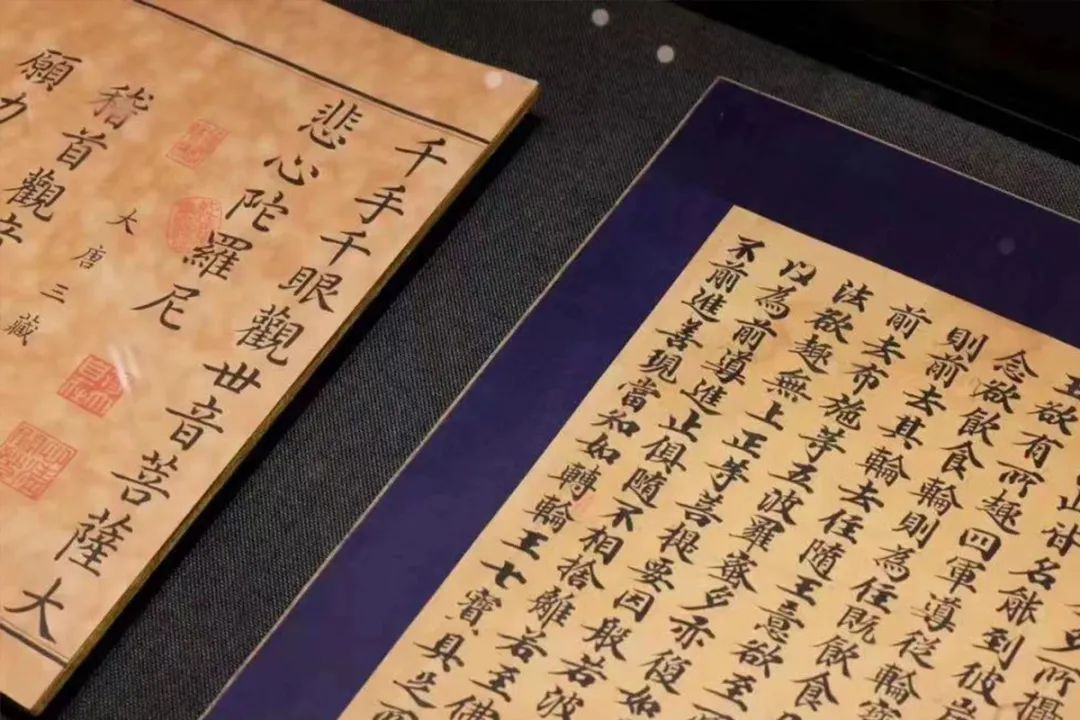 千手千眼觀世音菩薩大
悲心陀羅尼
大唐三藏
稽首觀音
願力
多所攝
皆名能到彼岸
王欲有所趣四軍導從輪
念欲飲食輪則為住既飲食
則前去其輪去住隨王意欲至
前去布施等五波羅蜜多亦復如
法欲趣無上正等菩提要因般若波
以為前導進止俱隨不相捨離若至佛
不前進善現當知如轉輪王七寶具足